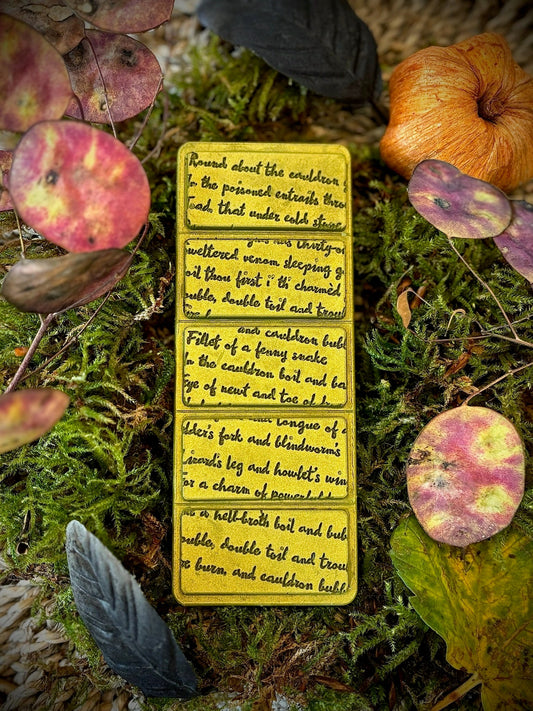 Round about the cauldron
In the poisoned entrails thro
Toad, that under cold stone
thirty-
sweltered venom sleeping g
Boil thou first i' th' charmèd
ouble, double toil and trou
and cauldron bubb
Fillet of a fenny snake
In the cauldron boil and ba
Eye of newt and toe of
tongue of
dder's fork and blindworm's
Lizard's leg and howlet's win
or a charm of powerful
a hell-broth boil and bub
ouble, double toil and trou
re burn, and cauldron bubb